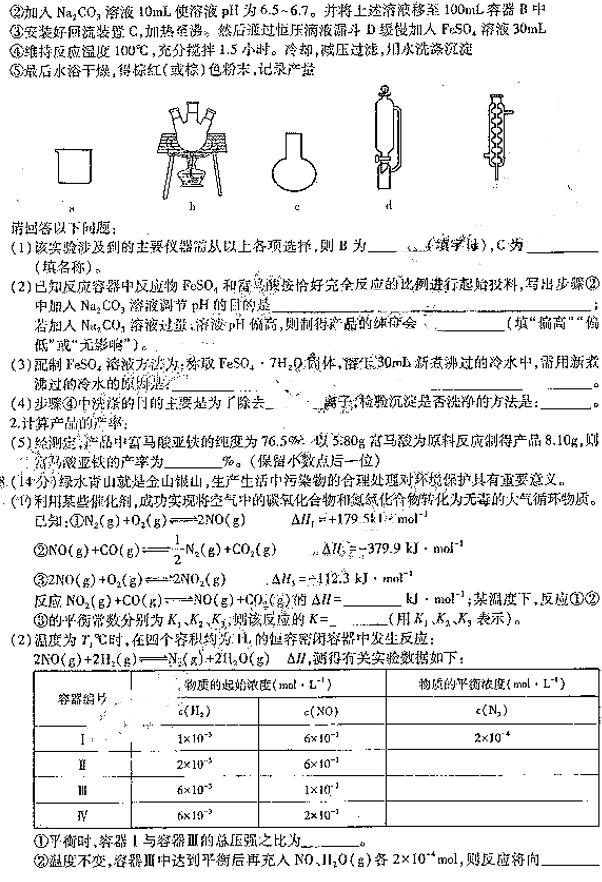 ②加入 Na₂CO₃ 溶液 10mL 使溶液 pH 为 6.5~6.7。并将上述溶液移至 100mL 容器 B 中
③安装好回流装置 C,加热至沸。然后通过恒压滴液漏斗 D 缓慢加入 FeSO₄ 溶液 30mL
④维持反应温度 100℃,充分搅拌 1.5 小时。冷却,减压过滤,用水洗涤沉淀
⑤最后水浴干燥,得棕红(或棕)色粉末,记录产量
a b c d
请回答以下问题:
(1)该实验涉及到的主要仪器需从以上各项选择,则 B 为____(填字母),C 为________
(填名称)。
(2)已知反应容器中反应物 FeSO₄ 和富马酸按恰好完全反应的比例进行起始投料,写出步骤②
中加入 Na₂CO₃ 溶液调节 pH 的目的是________;
若加入 Na₂CO₃ 溶液过量,溶液 pH 偏高,则制得产品的纯度会________(填“偏高”“偏
低”或“无影响”)。
(3)配制 FeSO₄ 溶液方法为:称取 FeSO₄·7H₂O 固体,溶于 30mL 新煮沸过的冷水中,需用新煮
沸过的冷水的原因是________。
(4)步骤④中洗涤的目的主要是为了除去________离子,检验沉淀是否洗净的方法是:______。
2.计算产品的产率:
(5)经测定,产品中富马酸亚铁的纯度为 76.5%。以 5.80g 富马酸为原料反应制得产品 8.10g,则
富马酸亚铁的产率为______%。(保留小数点后一位)
8.(14 分)绿水青山就是金山银山,生产生活中污染物的合理处理对环境保护具有重要意义。
(1)利用某些催化剂,成功实现将空气中的碳氧化合物和氮氧化合物转化为无毒的大气循环物质。
已知:①N₂(g)+O₂(g)⇌2NO(g) ΔH₁=+179.5kJ·mol⁻¹
②NO(g)+CO(g)⇌1/2N₂(g)+CO₂(g) ΔH₂=-379.9 kJ·mol⁻¹
③2NO(g)+O₂(g)⇌2NO₂(g) ΔH₃=-112.3 kJ·mol⁻¹
反应 NO₂(g)+CO(g)⇌NO(g)+CO₂(g)的 ΔH=______ kJ·mol⁻¹;某温度下,反应①②
③的平衡常数分别为 K₁、K₂、K₃,则该反应的 K=______(用 K₁、K₂、K₃ 表示)。
(2)温度为 T₁℃时,在四个容积均为 1L 的恒容密闭容器中发生反应:
2NO(g)+2H₂(g)⇌N₂(g)+2H₂O(g) ΔH,测得有关实验数据如下:
容器编号 物质的起始浓度(mol·L⁻¹) 物质的平衡浓度(mol·L⁻¹)
c(H₂) c(NO) c(N₂)
Ⅰ 1×10⁻³ 6×10⁻³ 2×10⁻⁴
Ⅱ 2×10⁻³ 6×10⁻³
Ⅲ 6×10⁻³ 1×10⁻³
Ⅳ 6×10⁻³ 2×10⁻³
①平衡时,容器Ⅰ与容器Ⅲ的总压强之比为________。
②温度不变,容器Ⅲ中达到平衡后再充入 NO、H₂O(g)各 2×10⁻⁴mol,则反应将向________